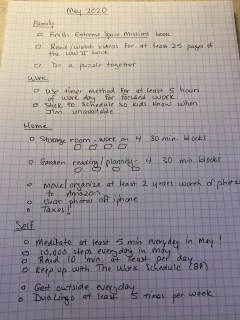 May 2020
Family
Finish Extreme Space Missions book
Read/watch videos for at least 25 pages of
the WW II book
Do a puzzle together
Work
Use timer method for at least 5 hours
of work day for focused work
Stick to schedule so kids know when
I'm unavailable
Home
Storage room - work on 4 30 min. blocks
Garden reading/planning - 4 30 min. blocks
Move/organize at least 2 years worth of photos
to Amazon
Clear photos off iPhone
Taxes!
Self
Meditate at least 5 min everyday in May!
10,000 steps everyday in May
Read 10 min. at least per day
Keep up with The Work Schedule
Get outside everyday
DuoLingo at least 5 times per week